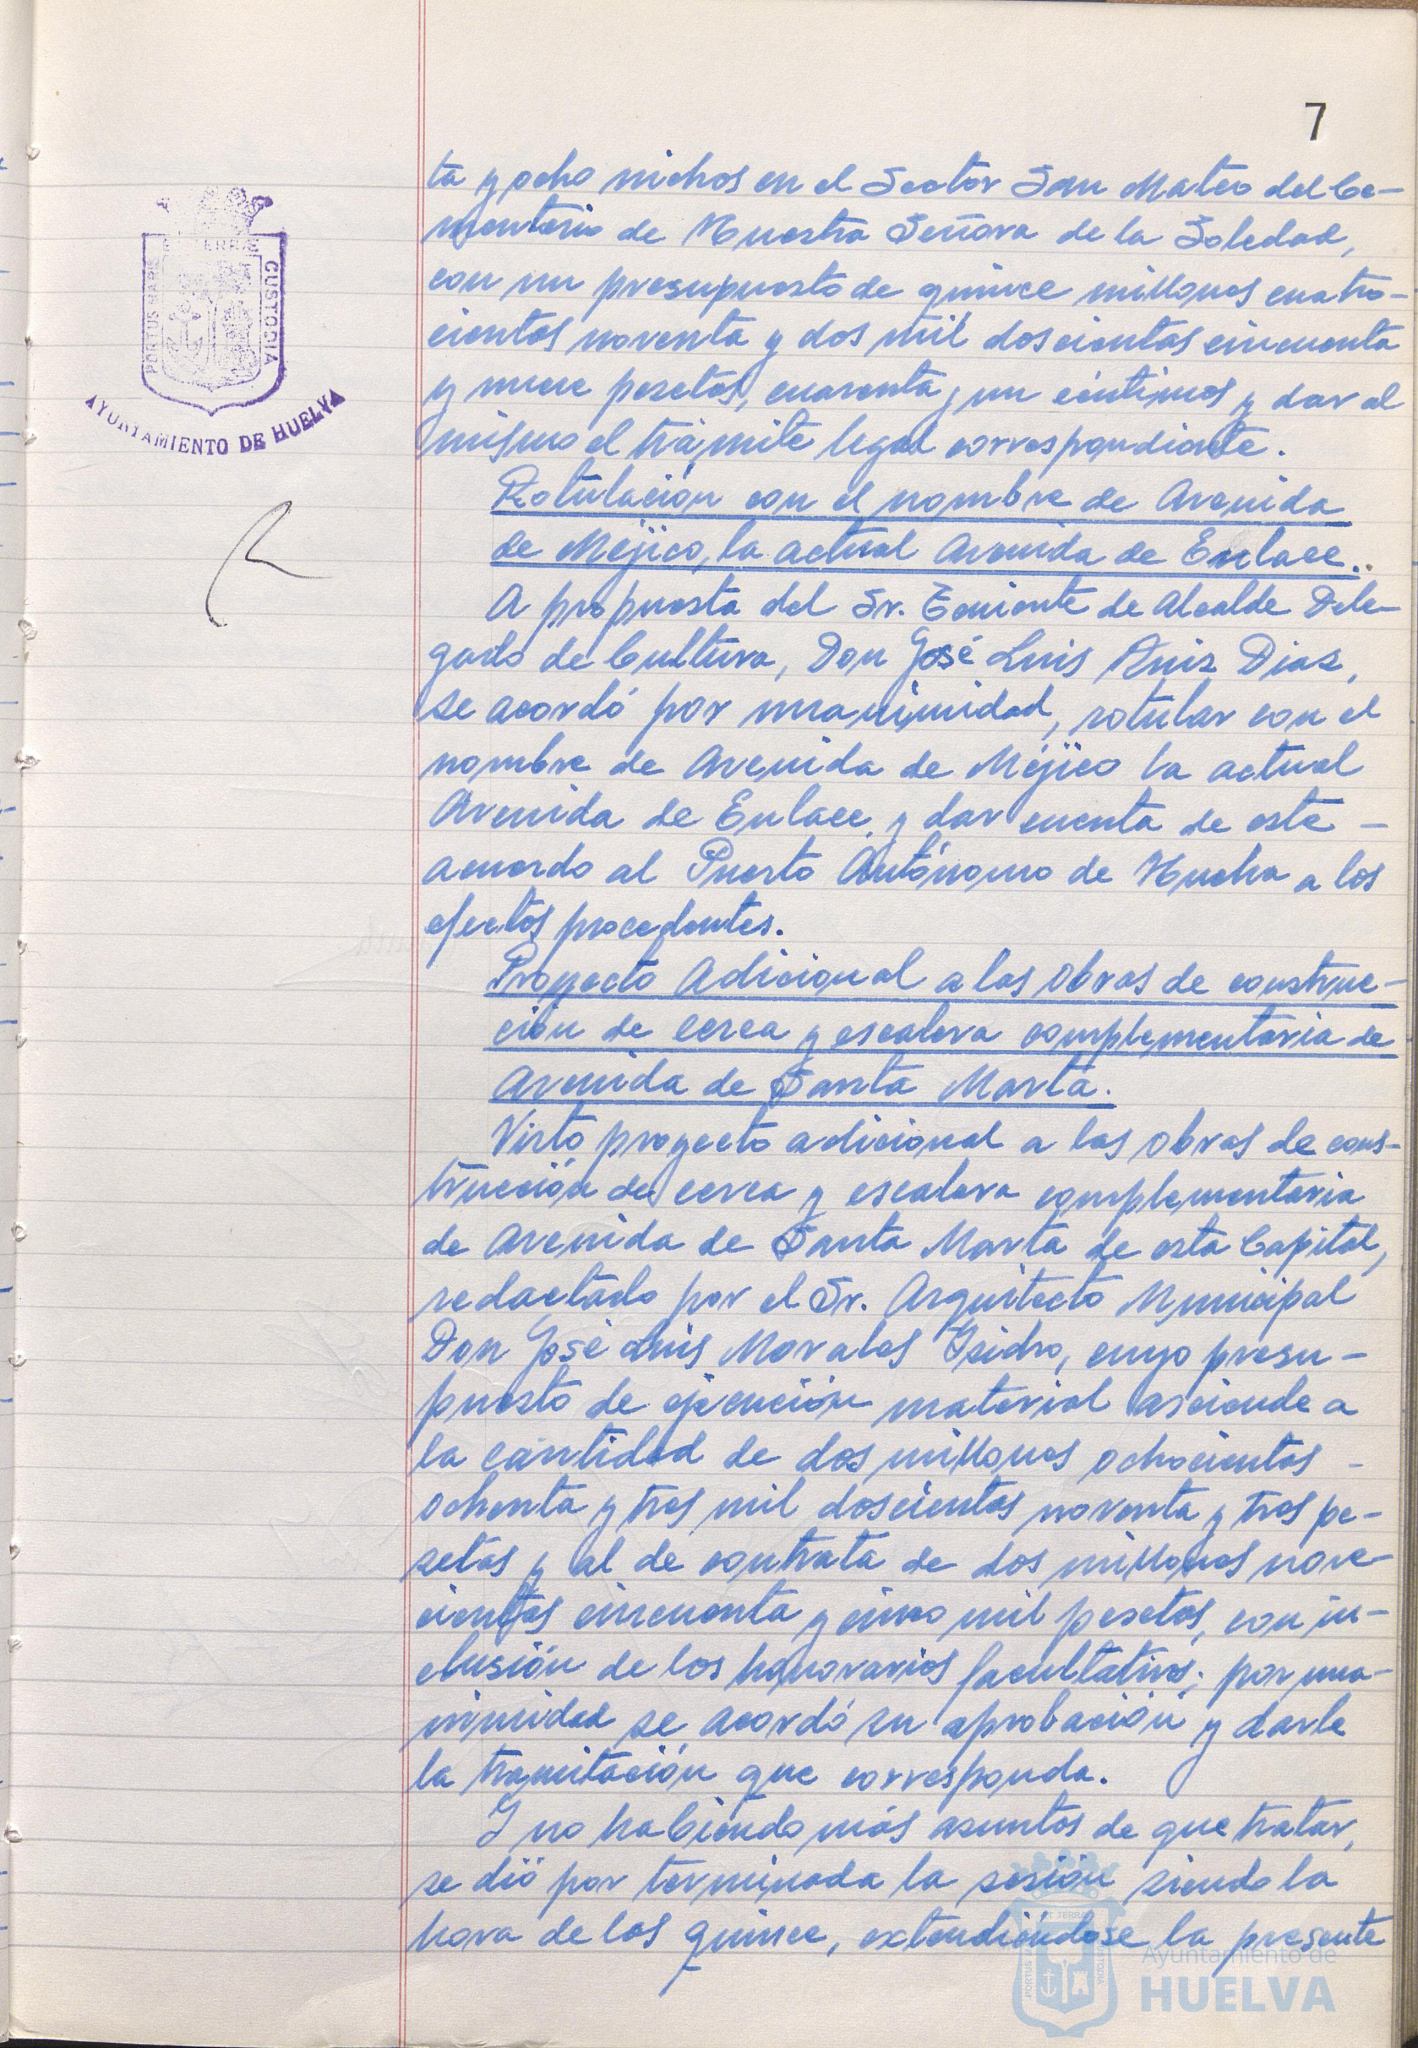 7
ta y ocho nichos en el Sector San Mateo del Ce-
menterio de Nuestra Señora de la Soledad,
con un presupuesto de quince millones cuatro-
cientas noventa y dos mil doscientas cincuenta
y nueve pesetas, cuarenta y un céntimos y dar al
mismo el trámite legal correspondiente.
Rotulación con el nombre de Avenida
de Méjico, la actual Avenida de Enlace.
A propuesta del Sr. Teniente de Alcalde Dele-
gado de Cultura, Don José Luis Ruiz Diaz,
se acordó por unanimidad, rotular con el
nombre de Avenida de Méjico la actual
Avenida de Enlace y dar cuenta de este -
acuerdo al Puerto Autónomo de Huelva a los
efectos procedentes.
Proyecto Adicional a las Obras de construc-
ción de cerca y escalera complementaria de
Avenida de Santa Marta.
Visto proyecto adicional a las obras de cons-
trucción de cerca y escalera complementaria
de Avenida de Santa Marta de esta Capital,
redactado por el Sr. Arquitecto Municipal
Don José Luis Morales Isidro, cuyo presu-
puesto de ejecución material asciende a
la cantidad de dos millones ochocientas -
ochenta y tres mil doscientas noventa y tres pe-
setas y al de contrata de dos millones nove
cientas cincuenta y cinco mil pesetas, con in-
clusión de los honorarios facultativos; por una-
nimidad se acordó su aprobación y darle
la tramitación que corresponda.
Y no habiendo más asuntos de que tratar,
se dió por terminada la sesión siendo la
hora de las quince, extendiéndose la presente
PORTUS MARIS ET TERRÆ CUSTODIA
AYUNTAMIENTO DE HUELVA
Ayuntamiento de
HUELVA